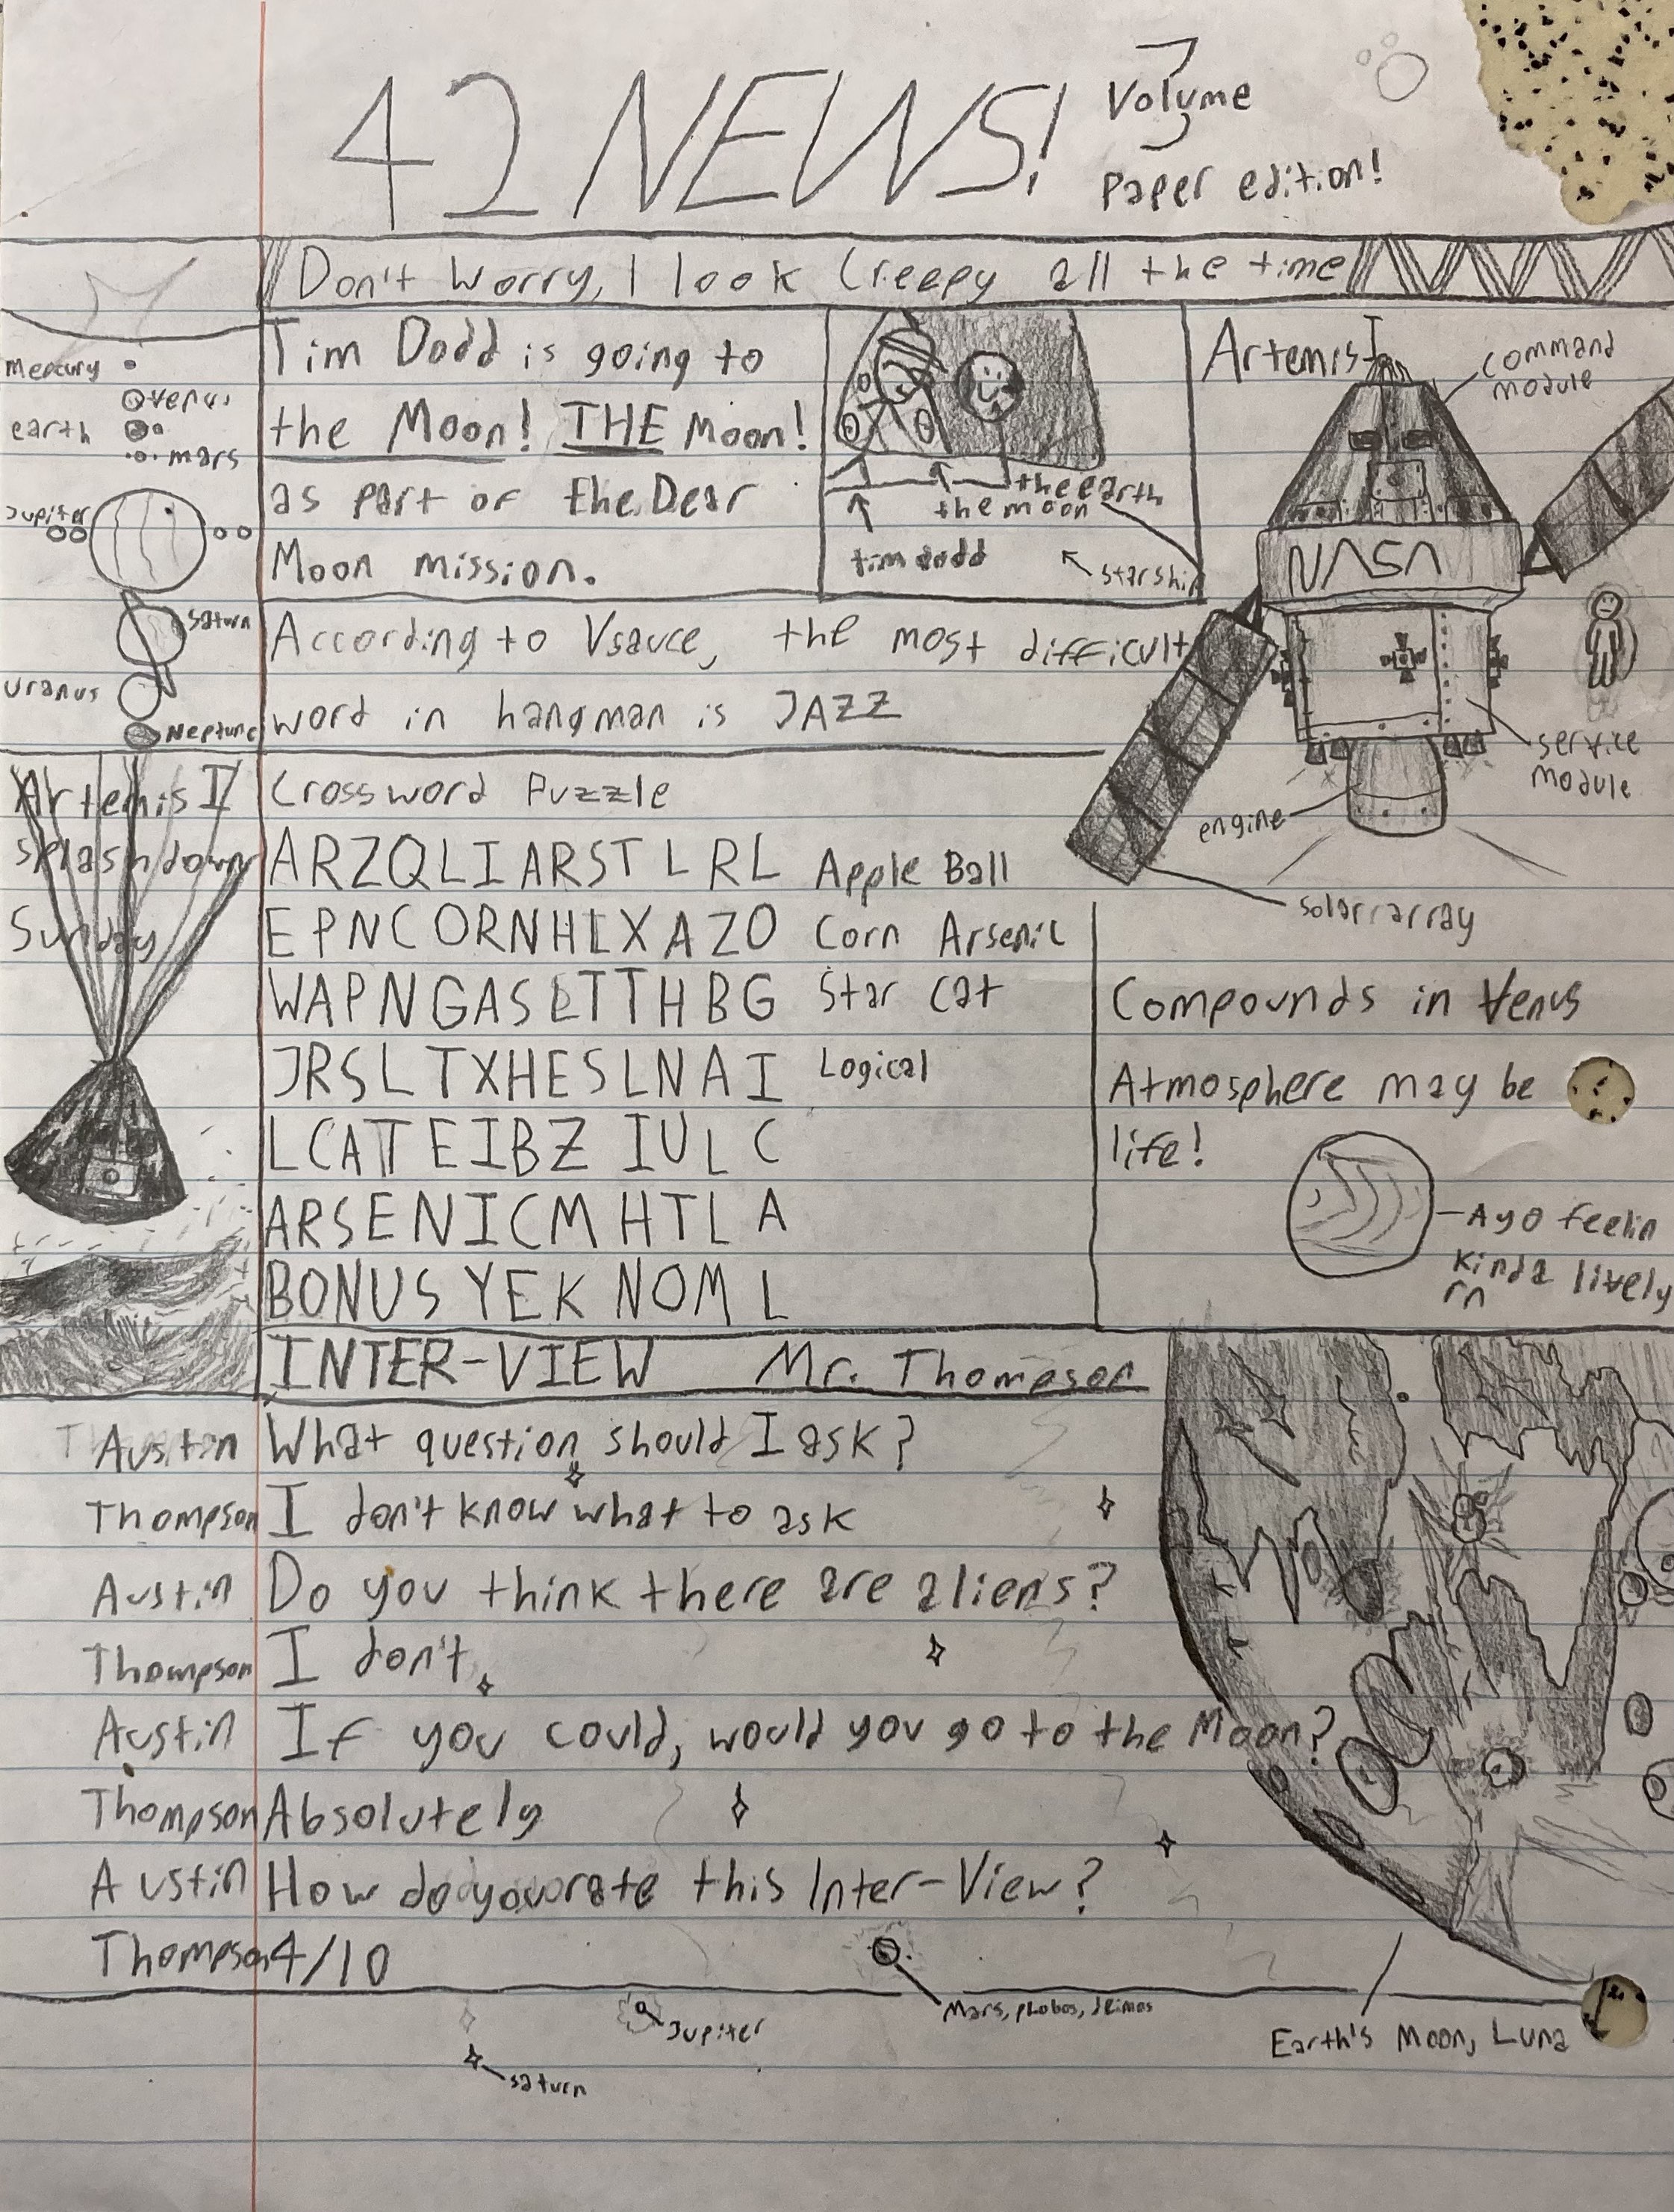 42 NEWS!
Volume
Paper edition!
Don't Worry, I look Creepy all the time
mercury
venus
earth
mars
Jupiter
saturn
uranus
Neptune
Tim Dodd is going to
the Moon! THE Moon!
as part of the Dear
Moon mission.
the earth
the moon
tim dodd
starship
Artemis I
command
module
NASA
service
module
engine
solar array
According to Vsauce, the most difficult
word in hangman is JAZZ
Artemis I
splashdown
Sunday
Crossword Puzzle
ARZQLIARSTLRL Apple Ball
EPNCORNHLXAZO Corn Arsenic
WAPNGASLTTHBG Star Cat
JRSLTXHESLNAI Logical
LCATTEIBZIULC
ARSENICMHTLA
BONUS YEK NOM L
Compounds in Venus
Atmosphere may be
life!
-Ayo feelin
kinda lively
rn
INTER-VIEW Mr. Thompson
Austin What question should I ask?
Thompson I don't know what to ask
Austin Do you think there are aliens?
Thompson I don't.
Austin If you could, would you go to the Moon?
Thompson Absolutely
Austin How do you rate this Inter-View?
Thompson 4/10
Mars, phobos, deimos
Jupiter
saturn
Earth's Moon, Luna